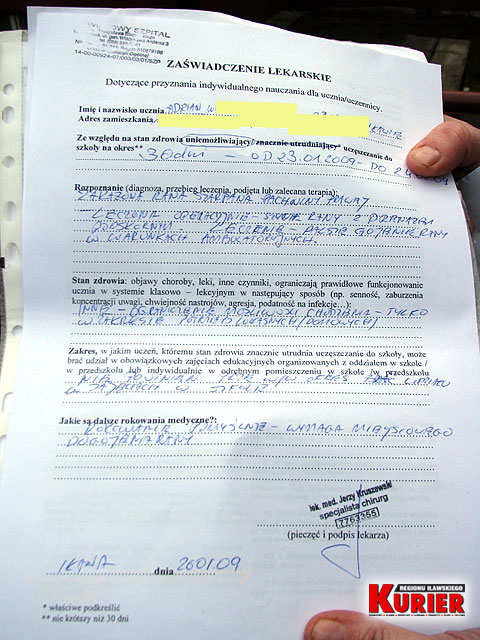 POWIATOWY SZPITAL
im. Władysława Andersa 3
14-00-00924-07/003/03/01/SZP
ZAŚWIADCZENIE LEKARSKIE
Dotyczące przyznania indywidualnego nauczania dla ucznia/uczennicy.
Imię i nazwisko ucznia ADRIAN W
Adres zamieszkania
Ze względu na stan zdrowia uniemożliwiający/znacznie utrudniający* uczęszczanie do
szkoły na okres** 30 dni – OD 23.01 2009 – DO 2
Rozpoznanie (diagnoza, przebieg leczenia, podjęta lub zalecana terapia):
ZAKAŻONA RANA SZARPANA PACHWINY PRAWEJ
– LECZONA OPERACYJNIE – SZYCIE RANY Z DRENAŻEM
LECZENIE – DALSZE GOJENIE RANY
W WARUNKACH AMBULATORYJNYCH.
Stan zdrowia: objawy choroby, leki, inne czynniki, ograniczają prawidłowe funkcjonowanie
ucznia w systemie klasowo – lekcyjnym w następujący sposób (np. senność, zaburzenia
koncentracji uwagi, chwiejność nastrojów, agresja, podatność na infekcje…):
INNE – OGRANICZENIE MOŻLIWOŚCI CHODZENIA – TYLKO
W ZAKRESIE POTRZEB WŁASNYCH (DOMOWYCH)
Zakres, w jakim uczeń, któremu stan zdrowia znacznie utrudnia uczęszczanie do szkoły, może
brać udział w obowiązkowych zajęciach edukacyjnych organizowanych z oddziałem w szkole /
w przedszkolu lub indywidualnie w odrębnym pomieszczeniu w szkole /w przedszkolu
NIE POWINIEN PRZEZ W/W OKRES BRAĆ UDZIAŁU
W ZAJĘCIACH W SZKOLE
Jakie są dalsze rokowania medyczne?:
ROKOWANIE POMYŚLNE – WYMAGA MIEJSCOWEGO
DOGOJENIA RANY
lek. med. Jerzy Kruszewski
specjalista chirurg
7763355
(pieczęć i podpis lekarza)
IŁAWA dnia 26.01.09
* właściwe podkreślić
** nie krótszy niż 30 dni
REGIONU IŁAWSKIEGO
KURIER